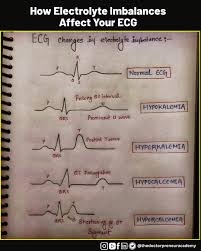 How Electrolyte Imbalances
Affect Your ECG
ECG changes in electrolyte imbalance:-
P
T
QRS
Normal ECG
Prolong QT interval
P
QRS
Prominent U wave
HYPOKALEMIA
P
Peaked T wave
QRS
HYPERKALEMIA
P
QT Prolongation
T
QRS
HYPOCALCEMIA
P
T
QRS
Shortening of QT
Segment
HYPERCALCEMIA
@thedoctorpreneuracademy